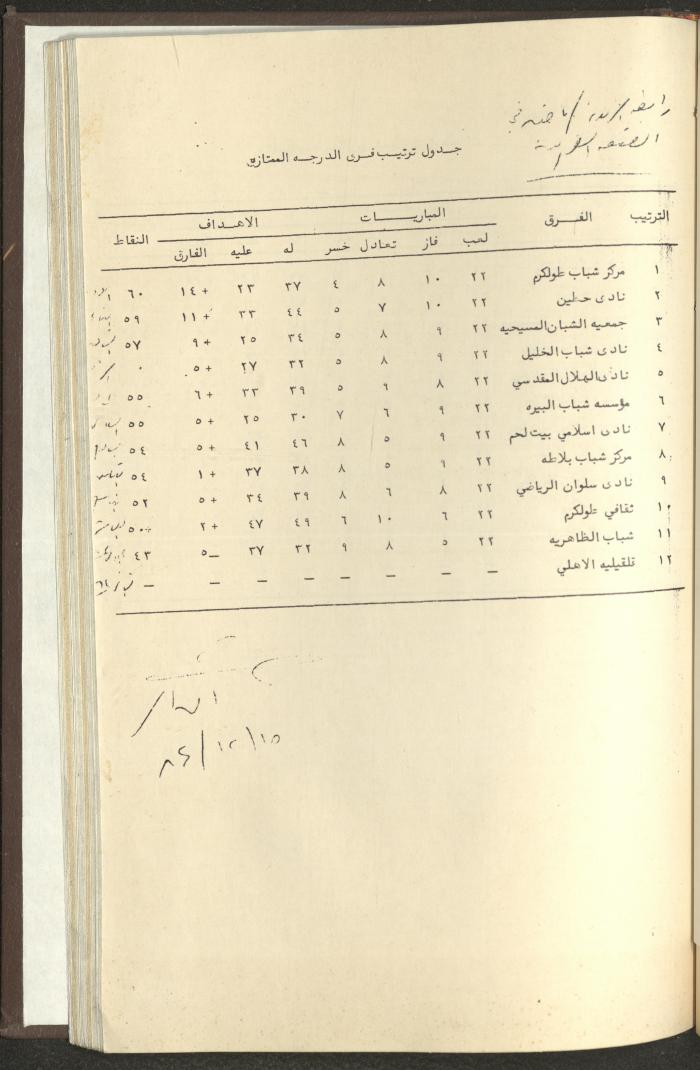 رابطة الأندية الرياضية في
الضفة الغربية
جدول ترتيب فرق الدرجه الممتازه
الترتيب الفرق المباريات الاهداف النقاط
لعب فاز تعادل خسر له عليه الفارق
١ مركز شباب طولكرم ٢٢ ١٠ ٨ ٤ ٣٧ ٢٣ + ١٤ ٦٠
٢ نادى حطين ٢٢ ١٠ ٧ ٥ ٤٤ ٣٣ + ١١ ٥٩
٣ جمعيه الشبان المسيحيه ٢٢ ٩ ٨ ٥ ٣٤ ٢٥ + ٩ ٥٧
٤ نادى شباب الخليل ٢٢ ٩ ٨ ٥ ٣٢ ٢٧ + ٥
٥ نادى الهلال المقدسي ٢٢ ٨ ٩ ٥ ٣٩ ٣٣ + ٦ ٥٥
٦ مؤسسه شباب البيره ٢٢ ٩ ٦ ٧ ٣٠ ٢٥ + ٥ ٥٥
٧ نادى اسلامي بيت لحم ٢٢ ٩ ٥ ٨ ٤٦ ٤١ + ٥ ٥٤
٨ مركز شباب بلاطه ٢٢ ٩ ٥ ٨ ٣٨ ٣٧ + ١ ٥٤
٩ نادى سلوان الرياضي ٢٢ ٨ ٦ ٨ ٣٩ ٣٤ + ٥ ٥٢
١٠ ثقافي طولكرم ٢٢ ٦ ١٠ ٦ ٤٩ ٤٧ + ٢ ٥٠
١١ شباب الظاهريه ٢٢ ٥ ٨ ٩ ٣٢ ٣٧ _ ٥ ٤٣
١٢ قلقيليه الاهلي – – – – – – – –
٨٤/١٢/١٥